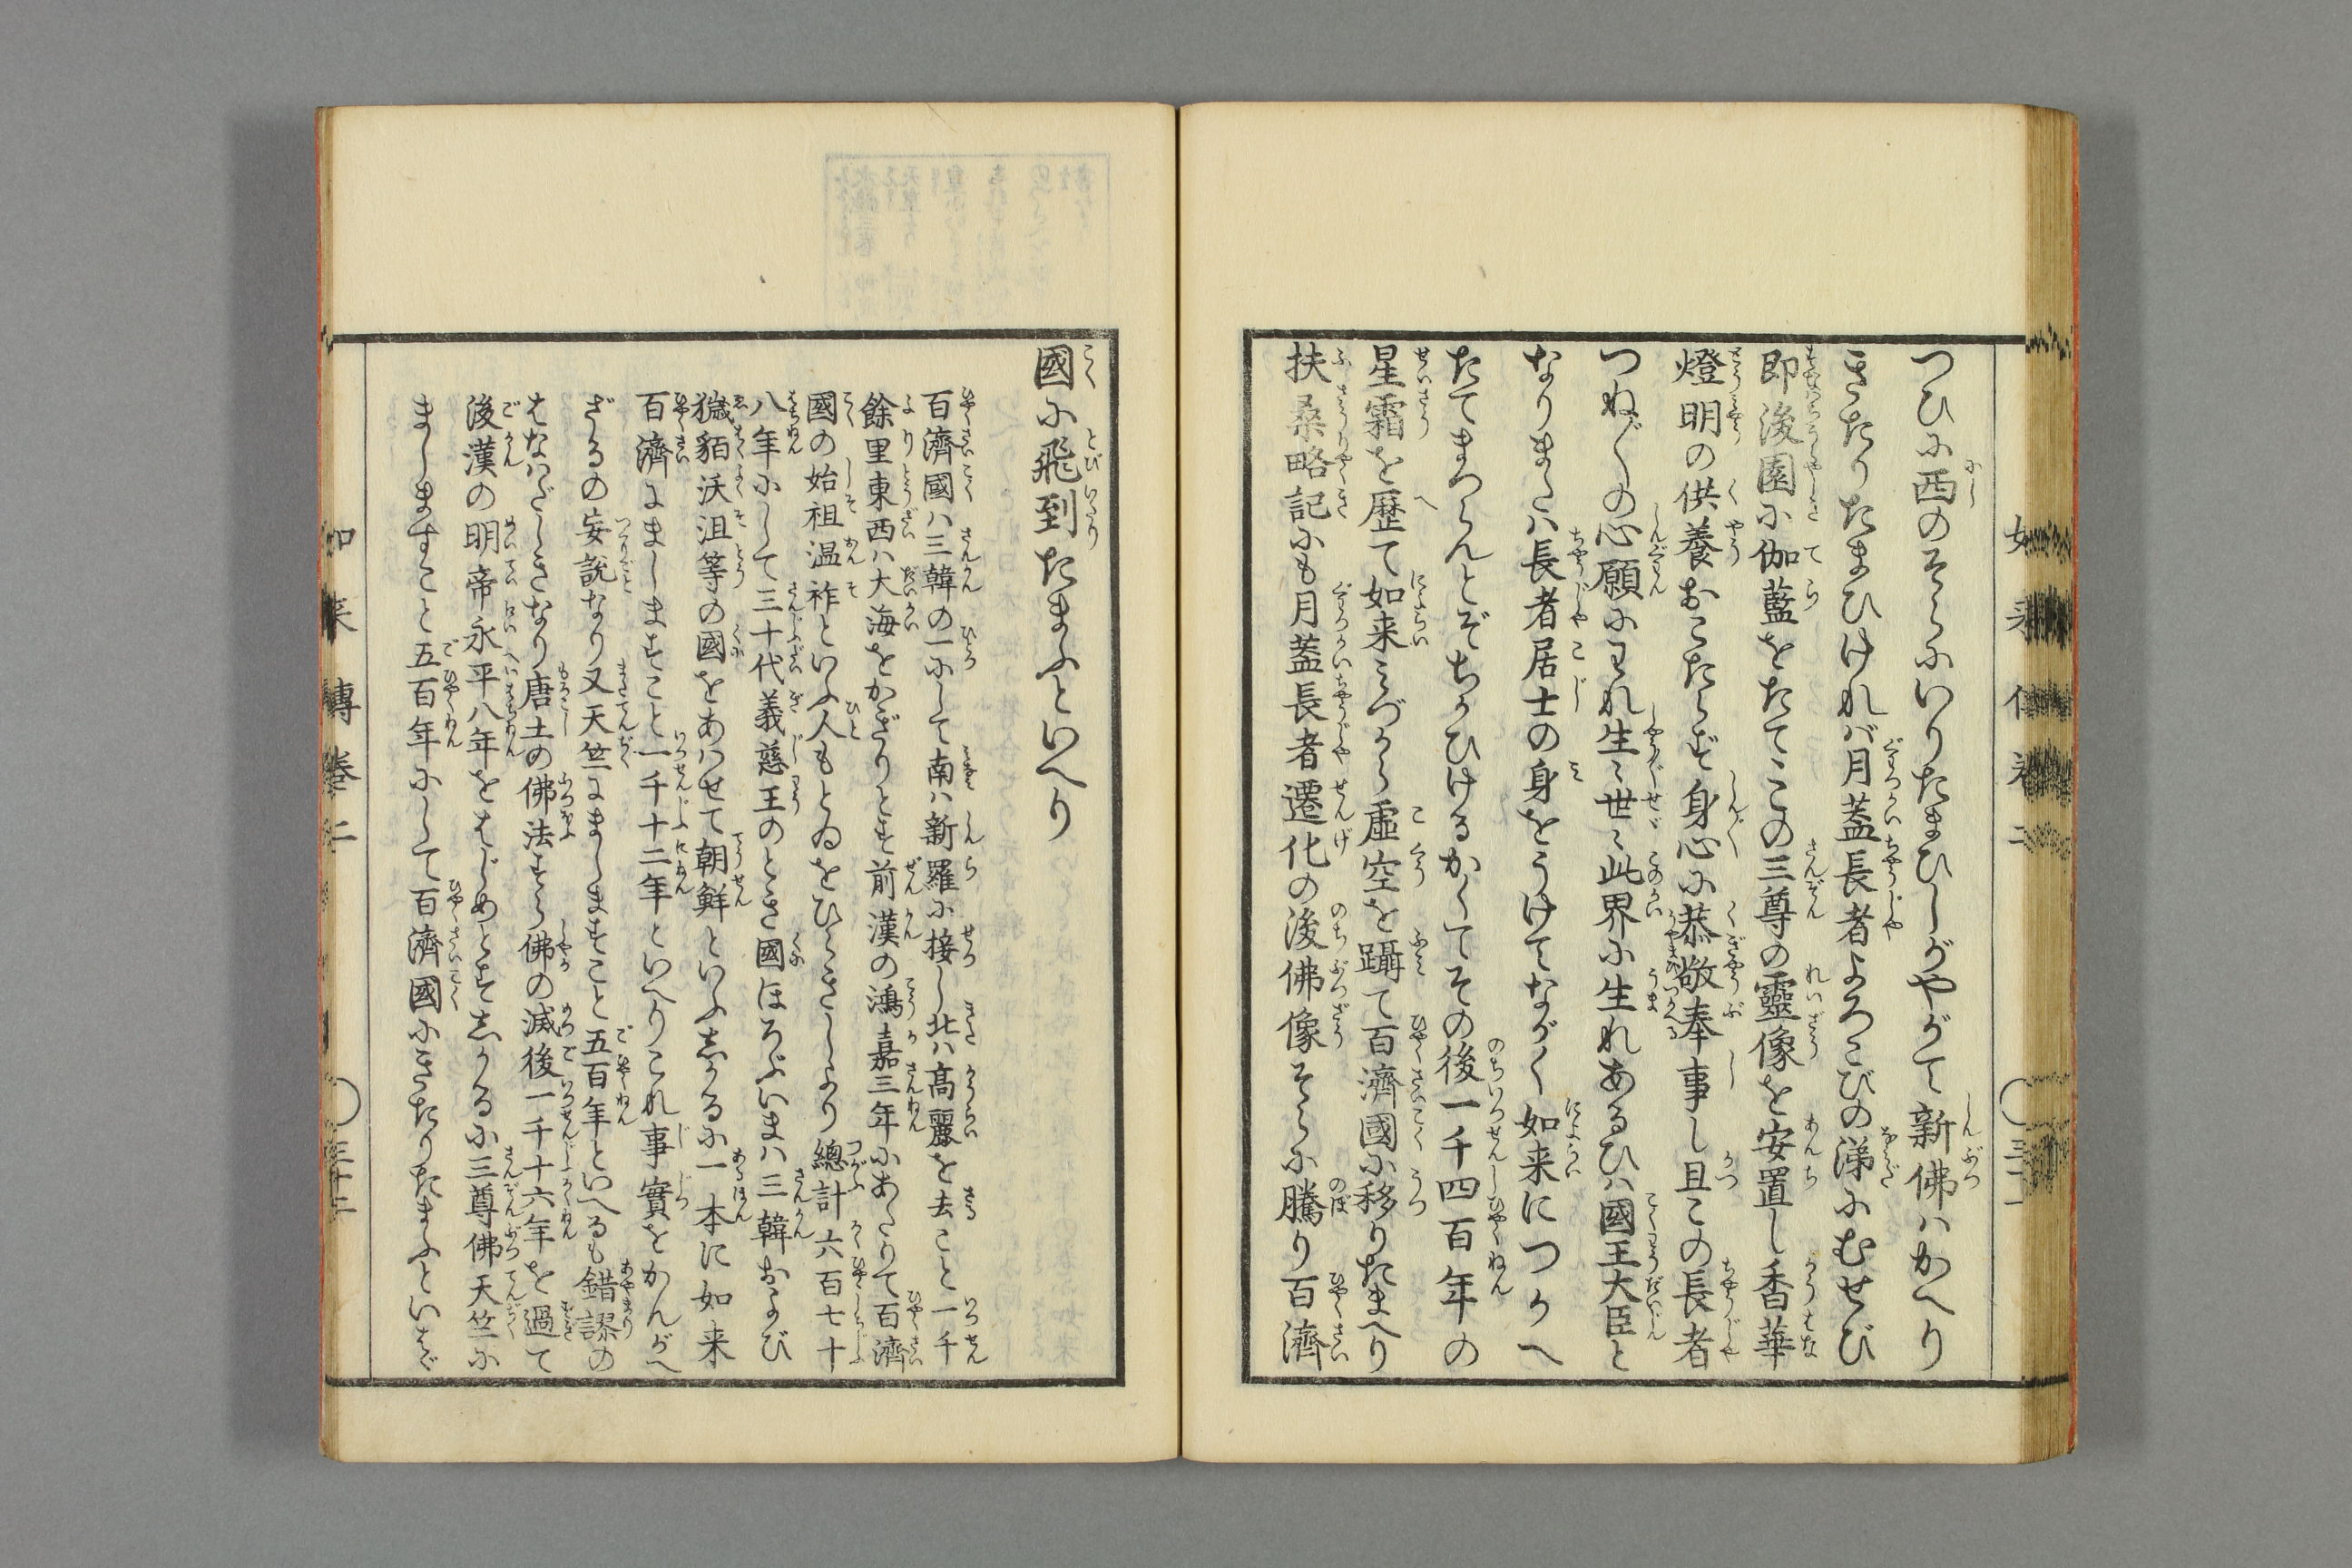 つひに西のそらにいりたまひしがやがて新佛ハかへり
きたりたまひけれバ月蓋長者よろこびの涕にむせび
即後園に伽藍をたてこの三尊の靈像を安置し香華
燈明の供養おこたらず身心に恭敬奉事し且この長者
つね〴〵の心願にわれ生〻世〻此界に生れあるひハ國王大臣と
なりまたハ長者居士の身をうけてながく如来につかへ
たてまつらんとぞちかひけるかくてその後一千四百年の
星霜を歴て如来みづから虚空を躡て百濟國に移りたまへり
扶桑略記にも月蓋長者遷化の後佛像そらに騰り百濟
國に飛到たまふといへり
百濟國ハ三韓の一にして南ハ新羅に接し北ハ高麗を去こと一千
餘里東西ハ大海をかぎりとす前漢の鴻嘉三年にあたりて百濟
國の始祖温祚といふ人もとゐをひらきしより總計六百七十
八年にして三十代義慈王のとき國ほろぶいまハ三韓および
獩貊沃沮等の國をあハせて朝鮮といふしかるに一本に如来
百濟にましますこと一千十二年といへりこれ事實をかんがへ
ざるの妄説なり又天竺にましますこと五百年といへるも錯謬の
はなハだしきなり唐土の佛法すら佛の滅後一千十六年を過て
後漢の明帝永平八年をはじめとすしかるに三尊佛天竺に
ましますこと五百年にして百濟國にきたりたまふといはゞ
如来傳巻二
三十二